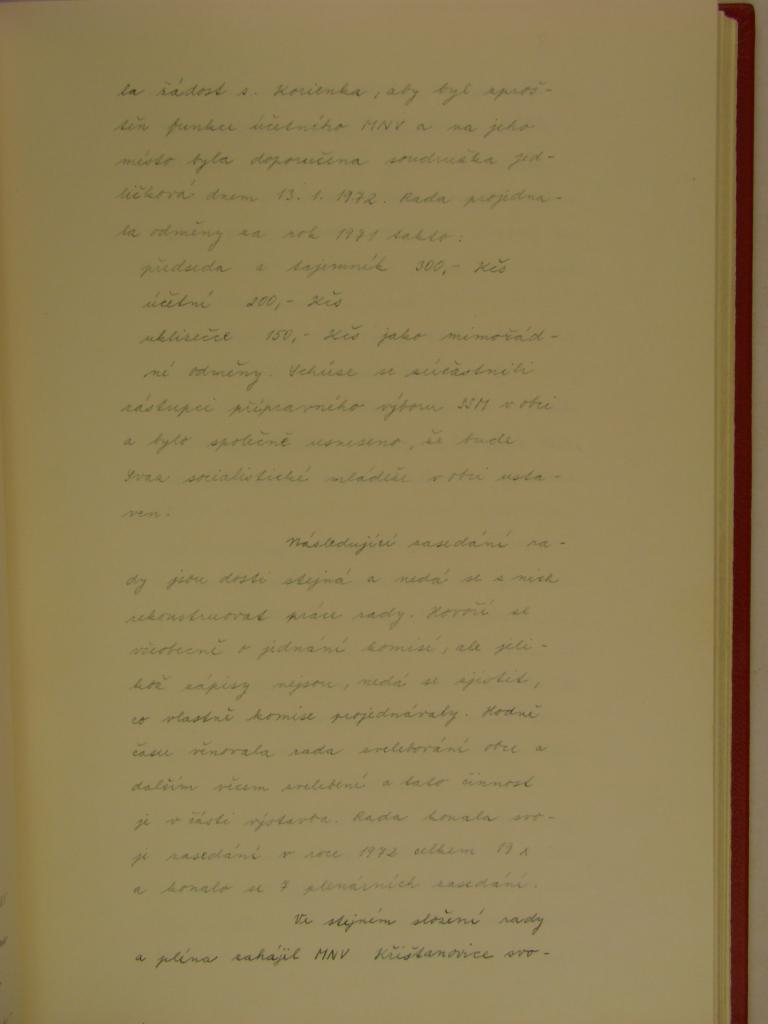 la žádost s. Korienka, aby byl sproš-
těn funkce účetního MNV a na jeho
místo byla doporučena soudružka Jed-
ličková dnem 13. 1. 1972. Rada projedna-
la odměny za rok 1971 takto:
předseda a tajemník 300,- Kčs
účetní 200,- Kčs
uklizečce 150,- Kčs jako mimořád-
né odměny. Schůze se súčastnili
zástupci přípravného výboru SSM v obci
a bylo společně usneseno, že bude
Svaz socialistické mládeže v obci usta-
ven.
Následující zasedání ra-
dy jsou dosti stejná a nedá se z nich
rekonstruovat práce rady. Hovoří se
všeobecně o jednání komisí, ale jeli-
kož zápisy nejsou, nedá se zjistit,
co vlastně komise projednávaly. Hodně
času věnovala rada zvelebování obce a
dalším věcem zvelebení a tato činnost
je v části výstavba. Rada konala svo-
je zasedání v roce 1972 celkem 19 x
a konalo se 7 plenárních zasedání.
Ve stejném složení rady
a pléna zahájil MNV Křišťanovice svo-